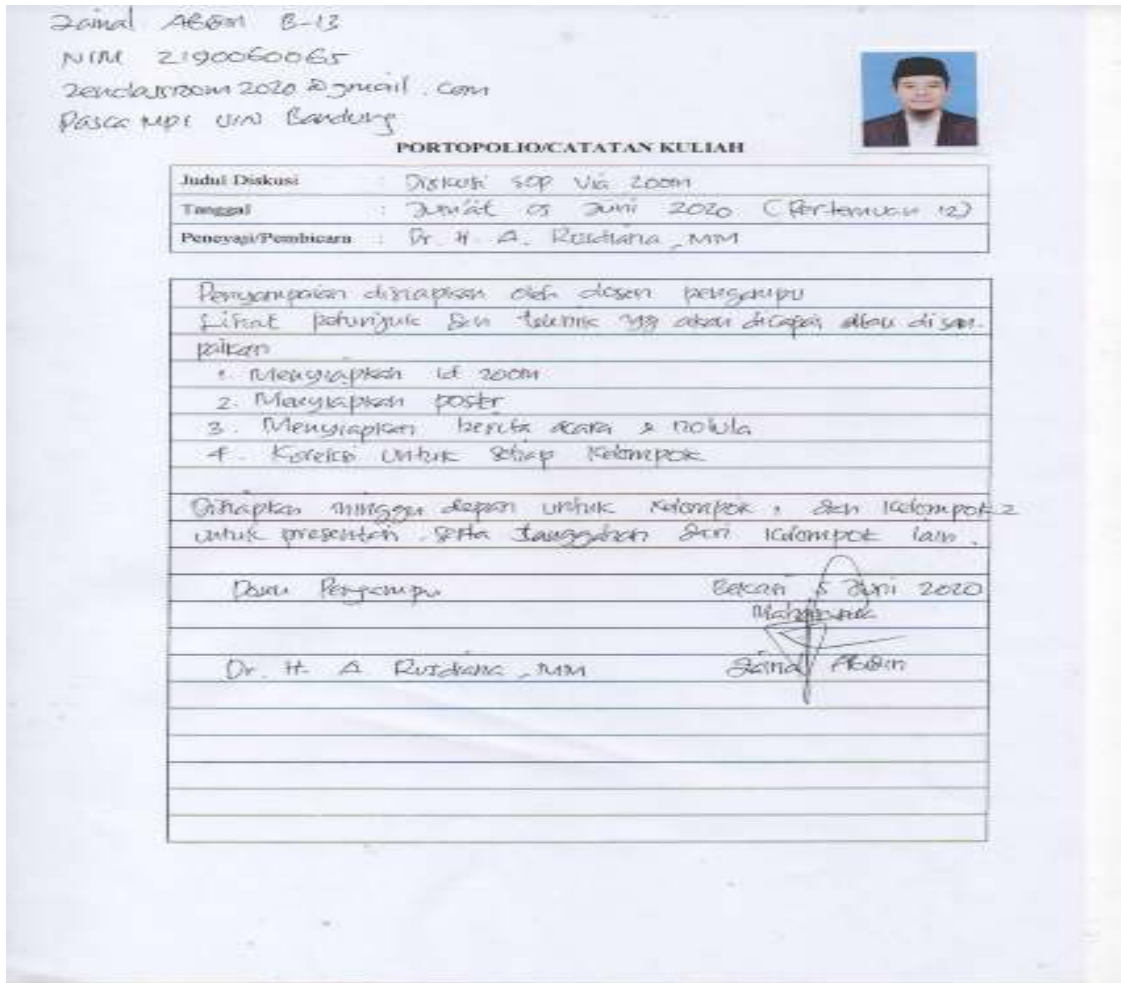 Zainal Abidin B-13
NIM 2190060065
2020 @gmail.com
Pasca MPI UIN Bandung
PORTOPOLIO/CATATAN KULIAH
Judul Diskusi : Diskusi SOP Via Zoom
Tanggal : Jum'at 05 Juni 2020 (Pertemuan 12)
/Pembicara : Dr. H. A. Rusdiana, MM
Penyampaian disiapkan oleh dosen pengampu
Lihat petunjuk dan teknik yg akan dicapai atau disam-
paikan
1. Menyiapkan id zoom
2. Menyiapkan poster
3. Menyiapkan berita acara & notula
4. Koreksi untuk setiap Kelompok
minggu depan untuk kelompok 1 dan kelompok 2
untuk presentasi serta tanggapan dari kelompok lain.
Dosen Pengampu
Bekasi 5 Juni 2020
Mahasiswa
Dr. H. A. Rusdiana, MM
Zainal Abidin